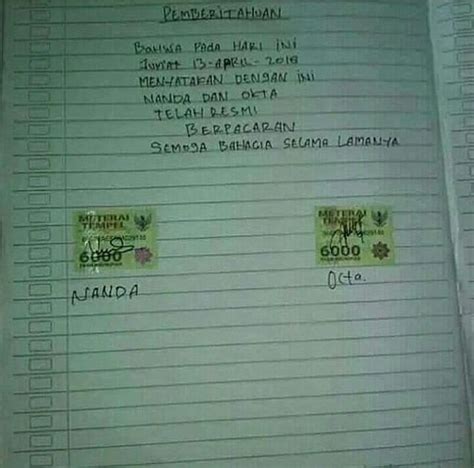 PEMBERITAHUAN
BAHWA PADA HARI INI
JUM'AT 13-APRIL-2018
MENYATAKAN DENGAN INI
NANDA DAN OKTA
TELAH RESMI
BERPACARAN
SEMOGA BAHAGIA SELAMA LAMANYA
METERAI TEMPEL
METERAI TEMPEL
6000
6000
NANDA
Octa